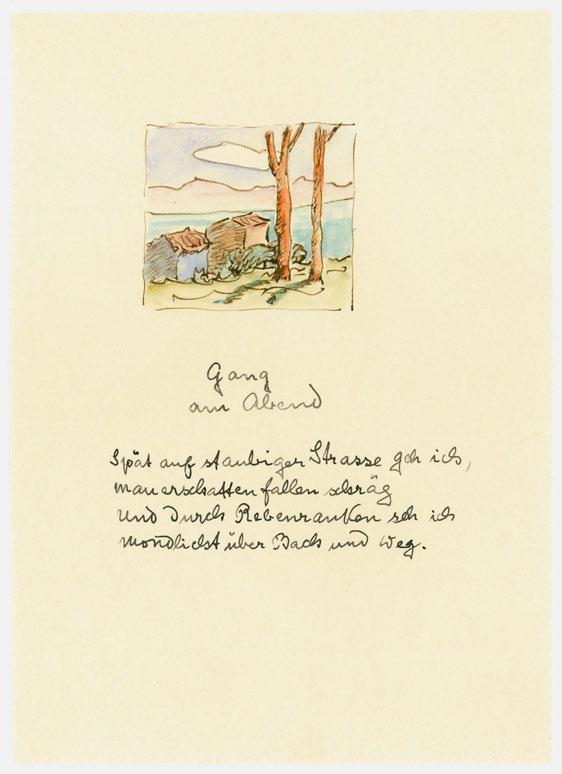 Gang
am Abend
Spät auf staubiger Strasse geh ich,
Mauerschatten fallen schräg
Und durch Rebenranken seh ich
Mondlicht über Bach und Weg.